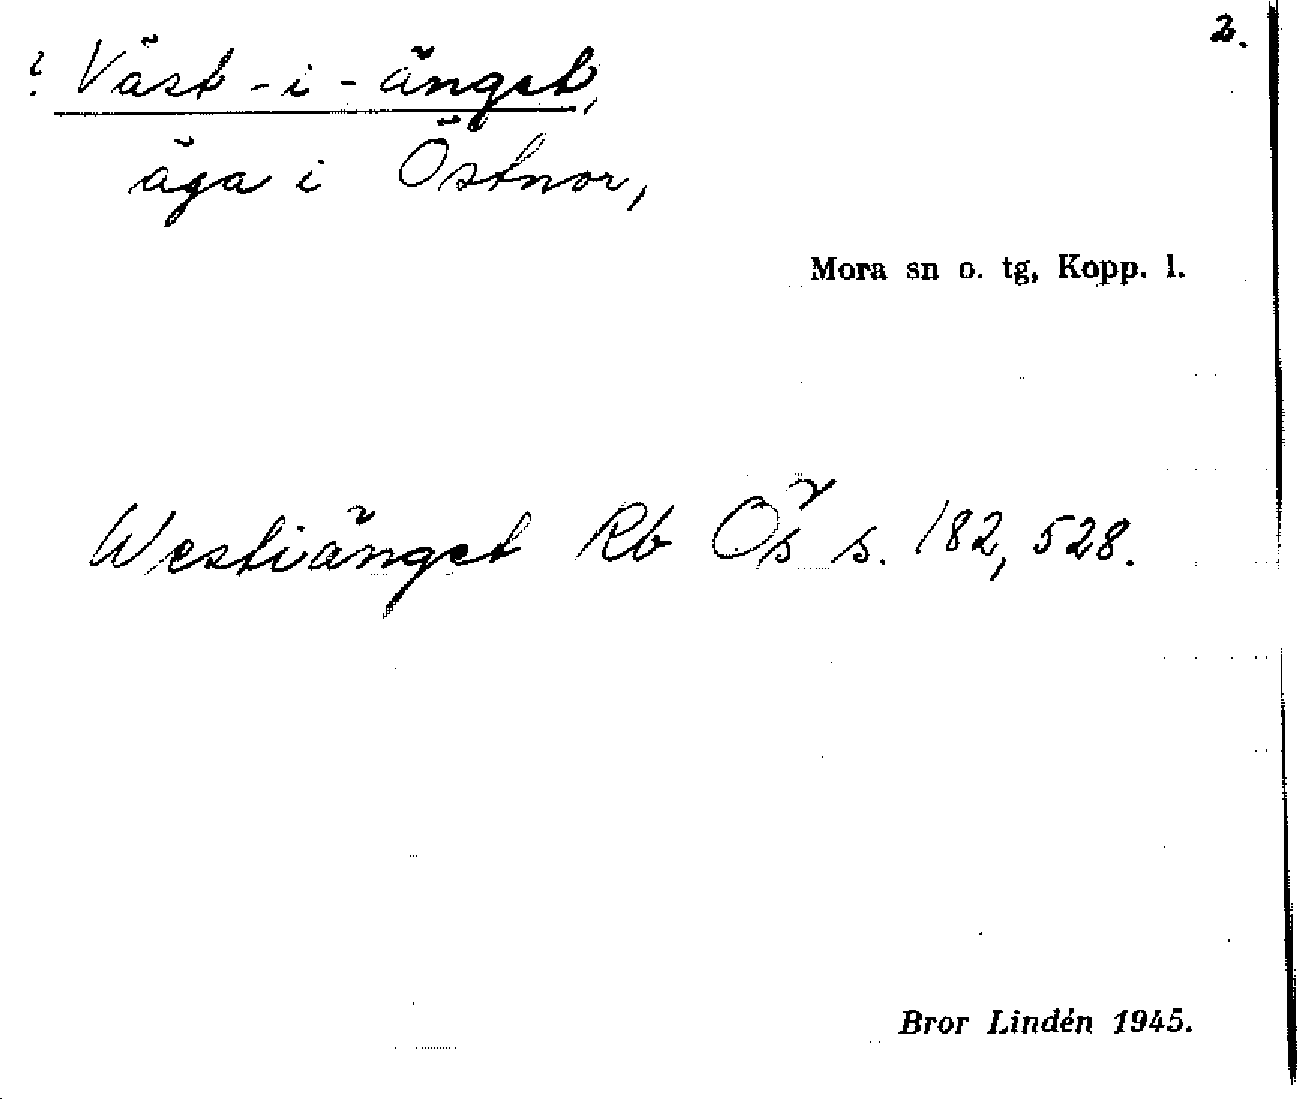 2.
? Väst-i-änget,
äga i Östnor,
Mora sn o. tg, Kopp. l.
Westiänget Rb Ös s. 182, 528.
Bror Lindén 1945.